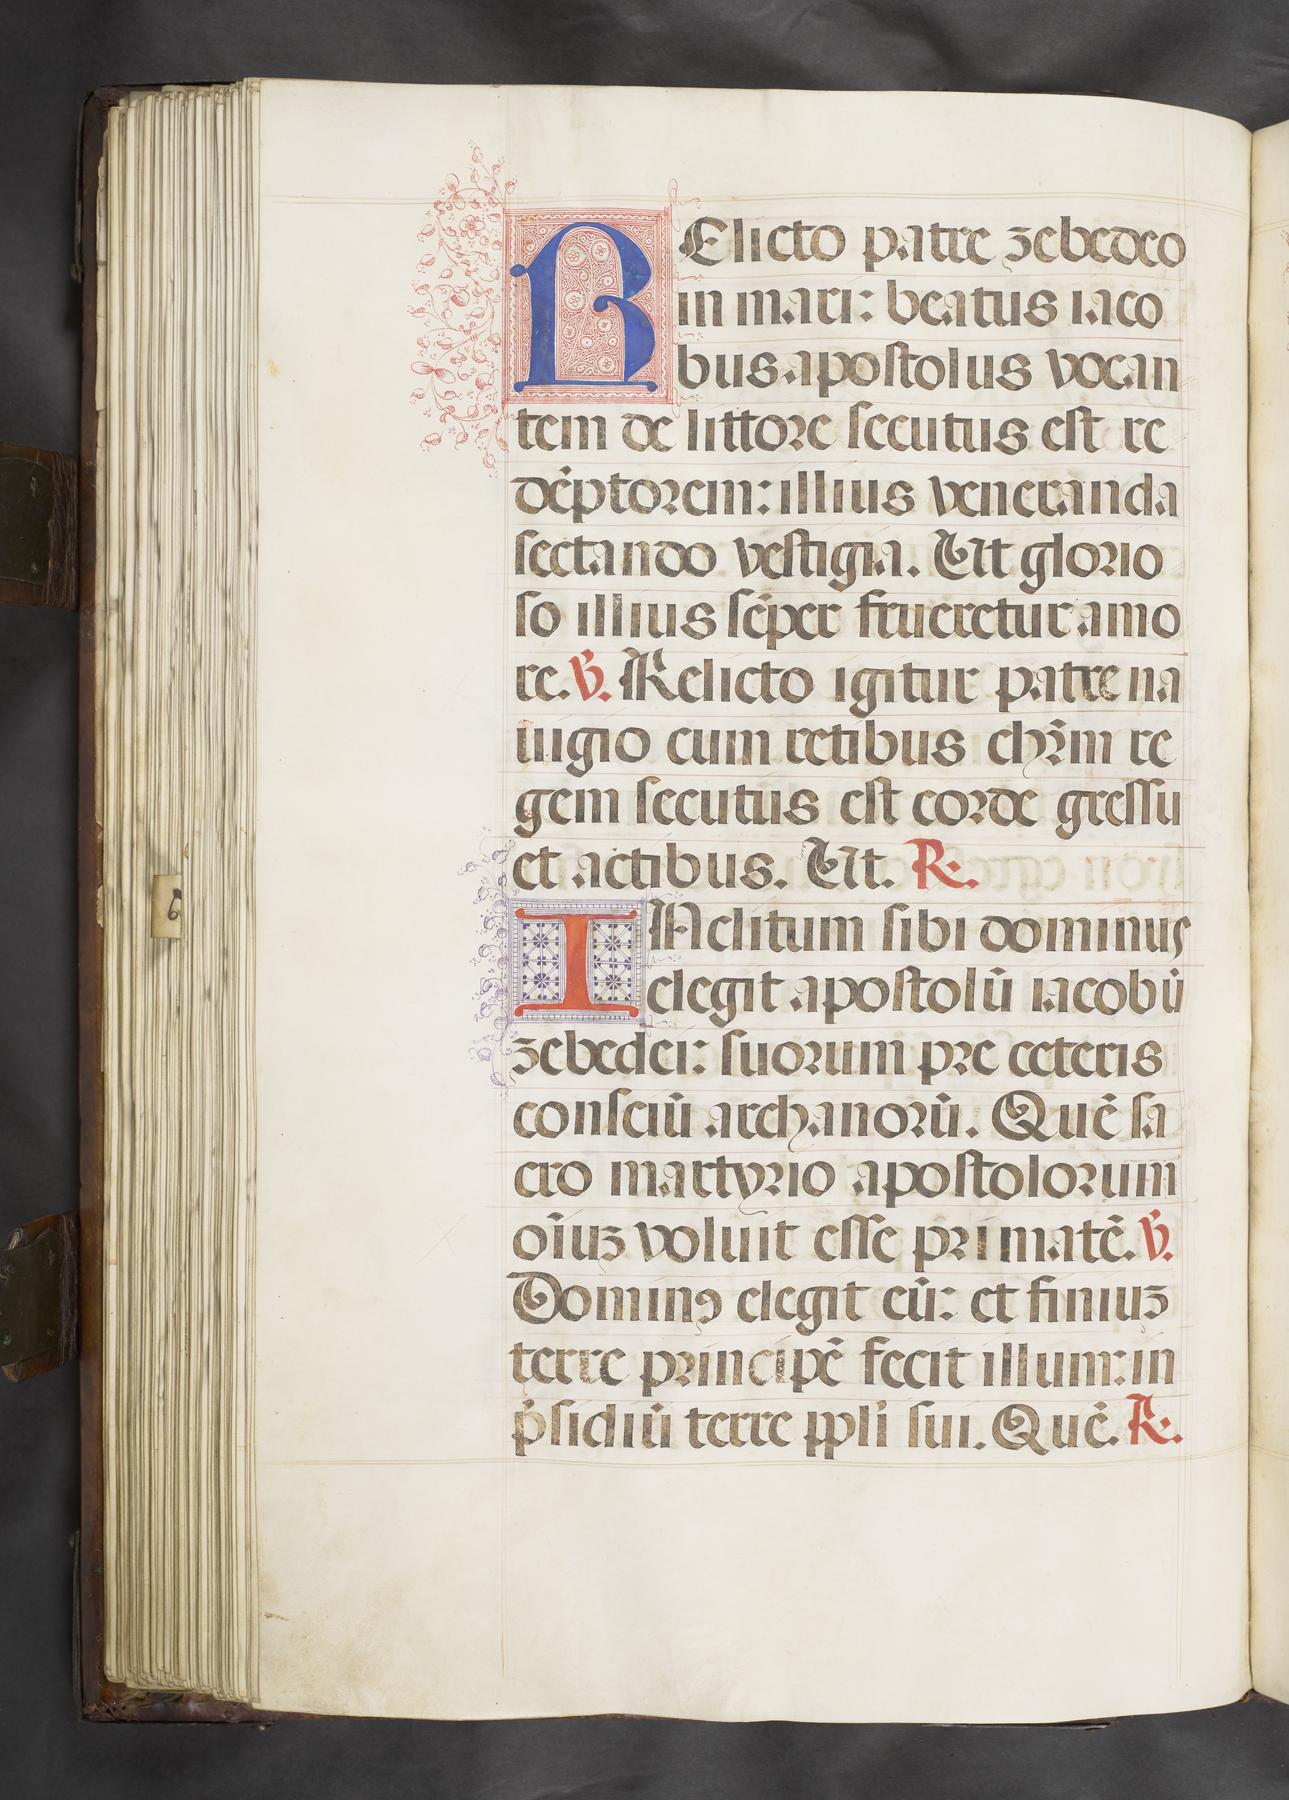 RElicto patre zebedeo
in mari: beatus iaco
bus apostolus vocan
tem de littore secutus est re
dēptorem: illius veneranda
sectando vestigia. Ut glorio
so illius sēper frueretur amo
re. V̄. Relicto igitur patre na
uigio cum retibus chr̄m re
gem secutus est corde gressu
et actibus. Ut. R.
INclitum sibi dominus
elegit apostolū iacobū
zebedei: suorum pre ceteris
consciū archanorū. Quē sa
cro martyrio apostolorum
oīuꝫ voluit esse primatē. V̄.
Dominꝯ elegit eū: et finiuꝫ
terre principē fecit illum: in
p̄sidiū terre ppl̄i sui. Quē. R.
6